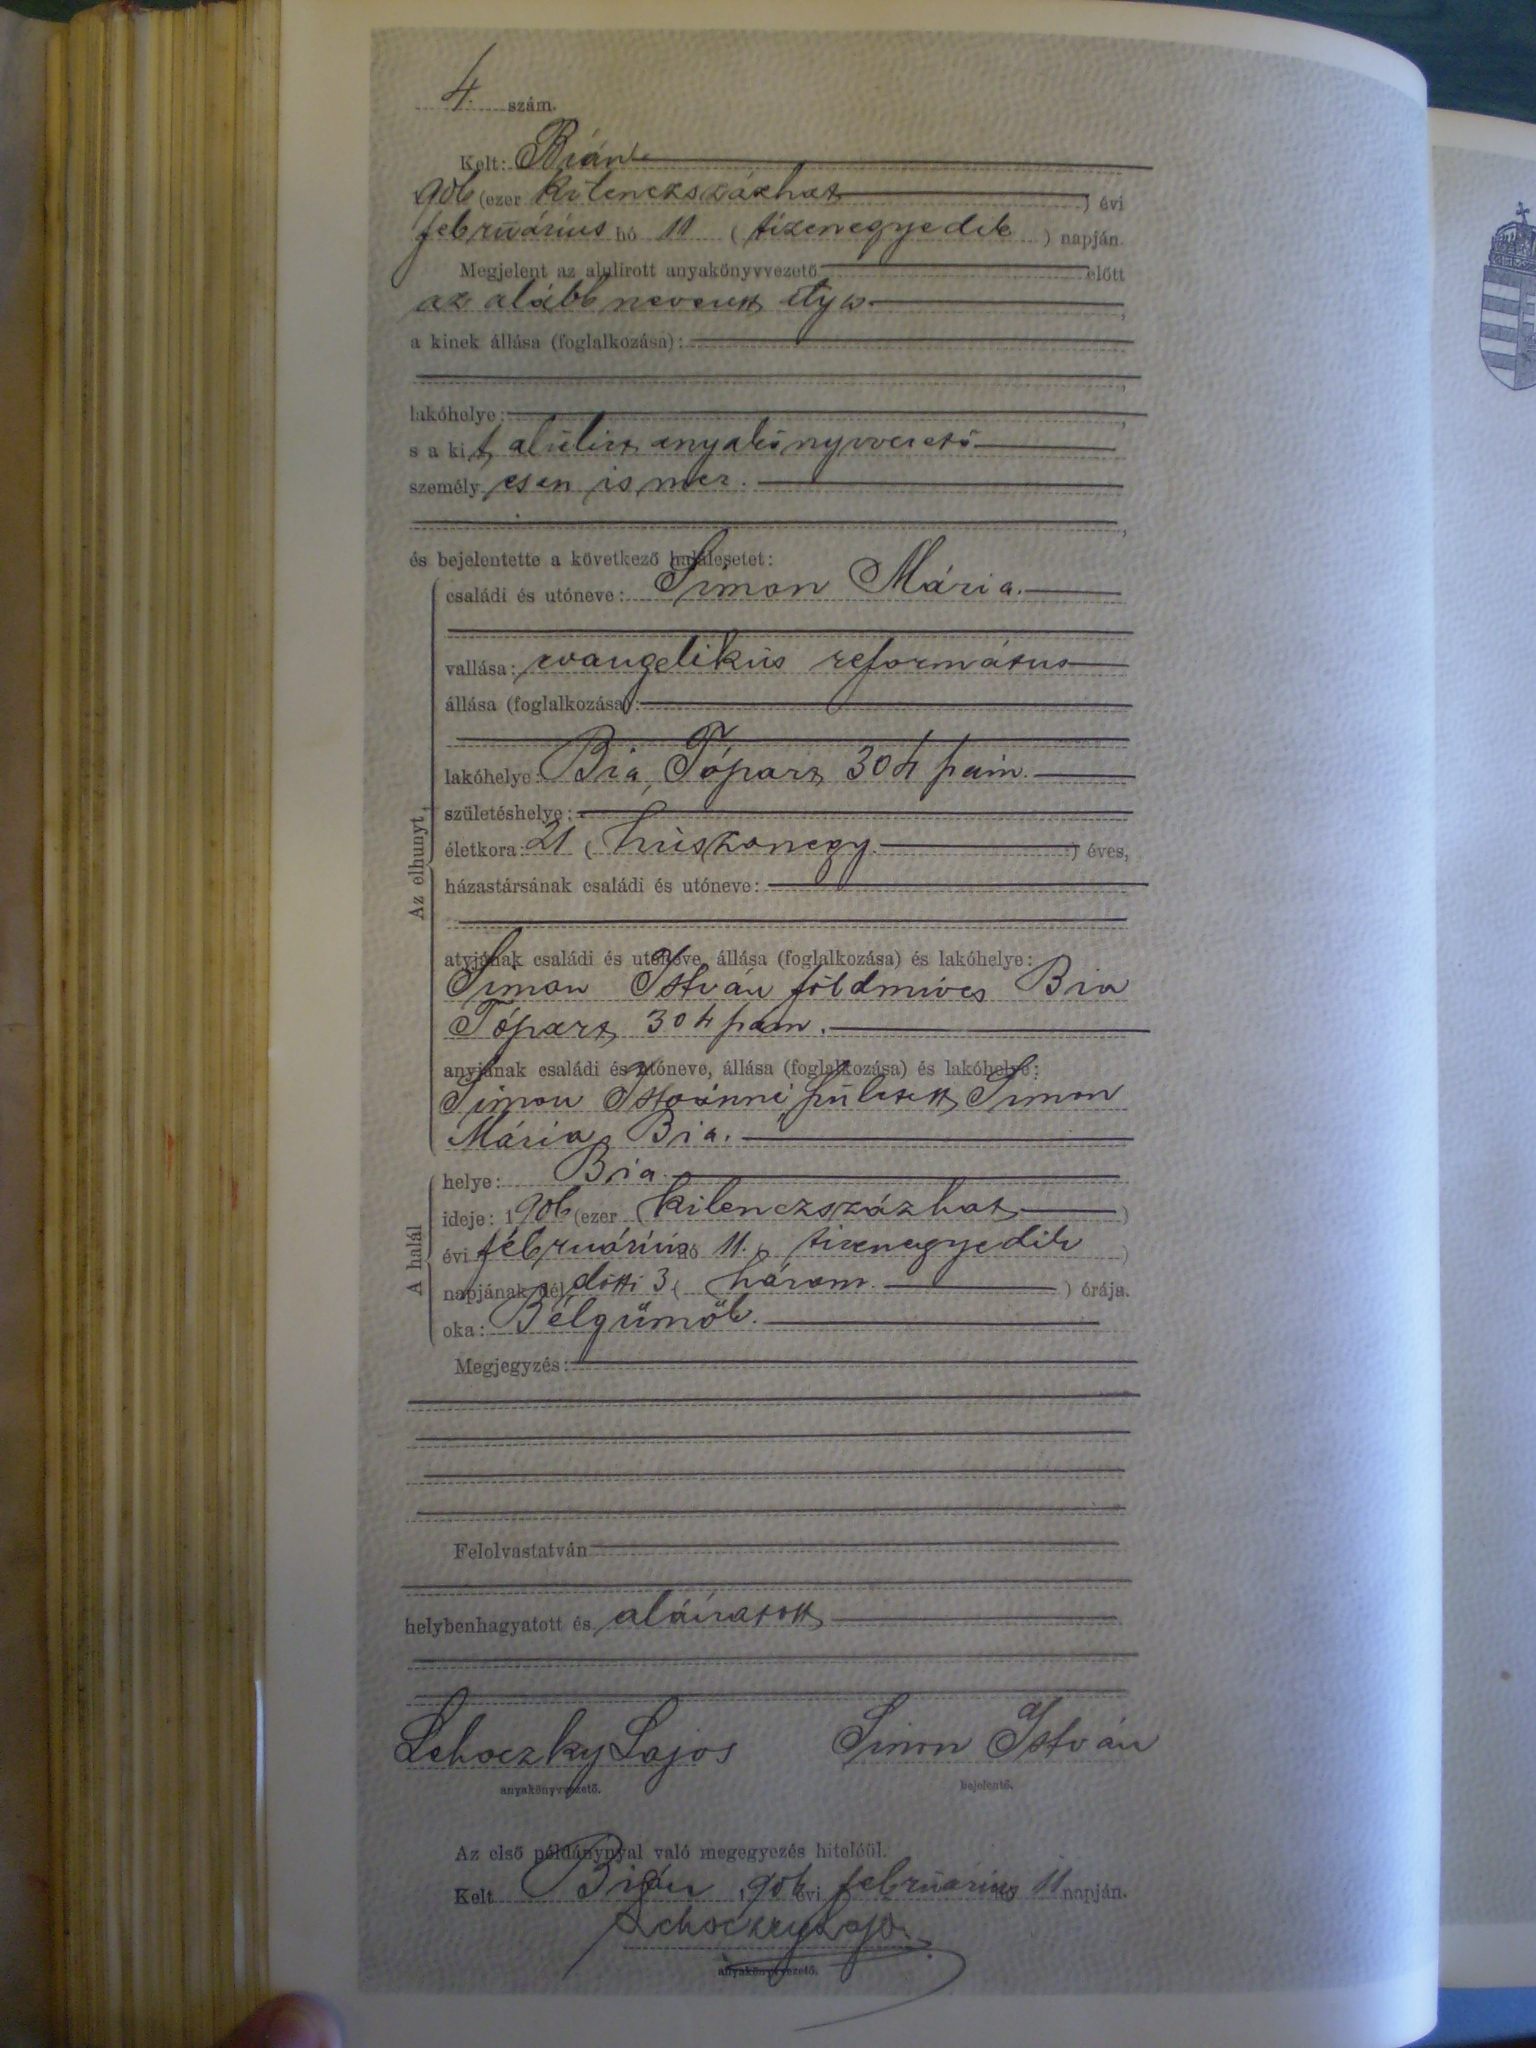 4. szám.
Kelt: Bián
1906 (ezer kilenczszázhat ) évi
február​ius hó 11 ( tizenegyedik ) napján.
Megjelent az alulírott anyakönyvvezető előtt
az alább nevezett atya
a kinek állása (foglalkozása):
lakóhelye:
s a kit alulirt anyakönyvvezető
személyesen ismer.
és bejelentette a következő halálesetet:
Az elhunyt
családi és utóneve: Simon Mária.
vallása: evangelikus református
állása (foglalkozása):
lakóhelye: Bia, Tópart 304 szám.
születéshelye:
életkora: 21 ( huszonegy. ) éves,
házastársának családi és utóneve:
atyjának családi és utóneve, állása (foglalkozása) és lakóhelye:
Simon István földmives Bia
Tópart 304 szám.
anyjának családi és utóneve, állása (foglalkozása) és lakóhelye:
Simon Istvánné született Simon
Mária Bia.
A halál
helye: Bia
ideje: 1906 (ezer kilenczszázhat )
évi februárius hó 11. ( tizenegyedik )
napjának dél előtti 3 ( három ) órája.
oka: Bélgümők.
Megjegyzés:
Felolvastatván
helybenhagyatott és aláíratott
Lehoczky Lajos Simon István
anyakönyvvezető. bejelentő.
Az első példánynyal való megegyezés hiteléül.
Kelt Bián 1906 évi februárius 11 napján.
Lehoczky Lajos
anyakönyvvezető.